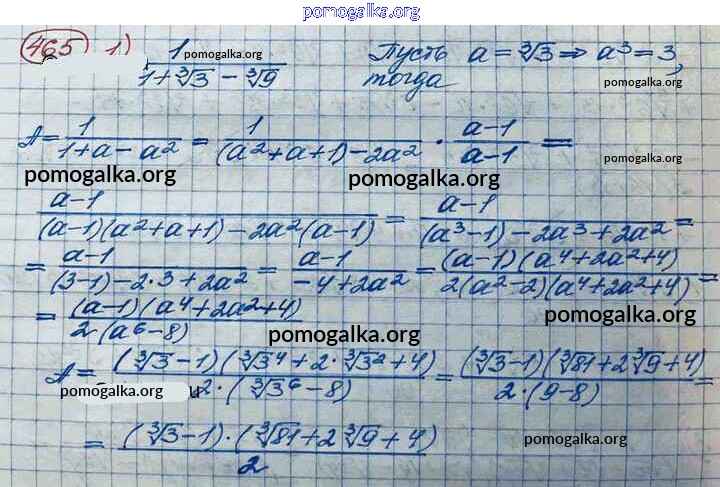 pomogalka.org
465 1) 1/(1+∛3 − ∛9) pomogalka.org Пусть a = ∛3 ⇒ a³ = 3,
тогда pomogalka.org
A = 1/(1+a−a²) = 1/((a²+a+1)−2a²) · (a−1)/(a−1) =
pomogalka.org pomogalka.org pomogalka.org
(a−1)/((a−1)(a²+a+1)−2a²(a−1)) = (a−1)/((a³−1)−2a³+2a²) =
= (a−1)/((3−1)−2·3+2a²) = (a−1)/(−4+2a²) = (a−1)(a⁴+2a²+4)/(2(a²−2)(a⁴+2a²+4)) =
= (a−1)(a⁴+2a²+4)/(2(a⁶−8))
pomogalka.org pomogalka.org
A = (∛3−1)(∛3⁴+2·∛3²+4)/(2·(∛3⁶−8)) = (∛3−1)(∛81+2∛9+4)/(2·(9−8)) =
pomogalka.org и pomogalka.org
= (∛3−1)·(∛81+2∛9+4)/2
pomogalka.org